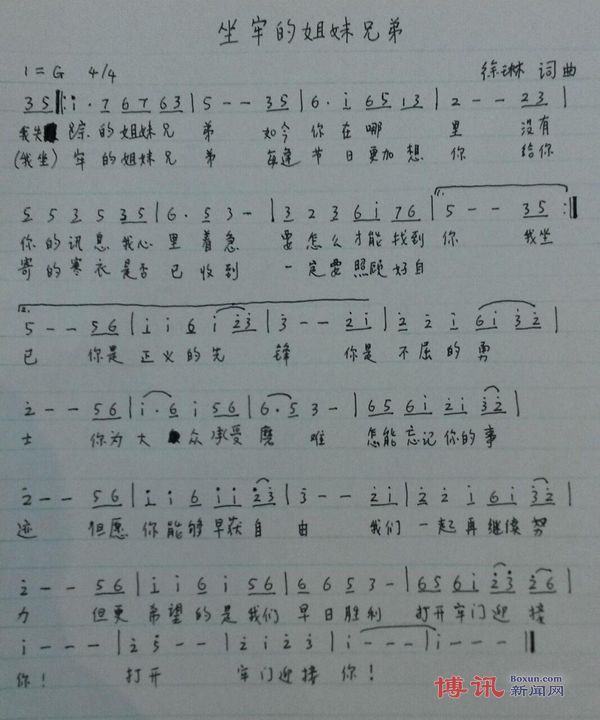 坐牢的姐妹兄弟
1=G 4/4 徐琳 词曲
35‖: i·7 67 63 | 5 - - 35 | 6· i 65 13 | 2 - - 23 |
我失踪的姐妹兄弟 如今你在哪里 没有
(我坐)牢的姐妹兄弟 每逢节日更加想你 给你
5 5 3 5 35 | 6· 5 3 - | 3 2 3 6 i 76 | 5 - - 35 :‖
你的讯息我心里着急 要怎么才能找到你 我坐
寄的寒衣是否已收到 一定要照顾好自
2.
5 - - 56 | i i 6 i 23 | 3 - - 2i | 2 2 i 6i 32 |
已 你是正义的先锋 你是不屈的勇
2 - - 56 | i· 6 i 56 | 6· 5 3 - | 65 6i 2i 32 |
士 你为大众承受磨难 怎能忘记你的事
2 - - 56 | i i 6 ii 23 | 3 - - 2i | 2 2 i 6i 32 |
迹 但愿你能够早获自由 我们一起再继续努
2 - - 56 | i i 6i i 56 | 6 6 5 3 - | 65 6i 23 26 |
力 但更希望的是我们早日胜利 打开牢门迎接
i - - - | 2 5 - - | 2 i 2 3 | i - - - | i - - - ‖
你! 打开 牢门迎接你!
博讯 Boxun.com 新闻网